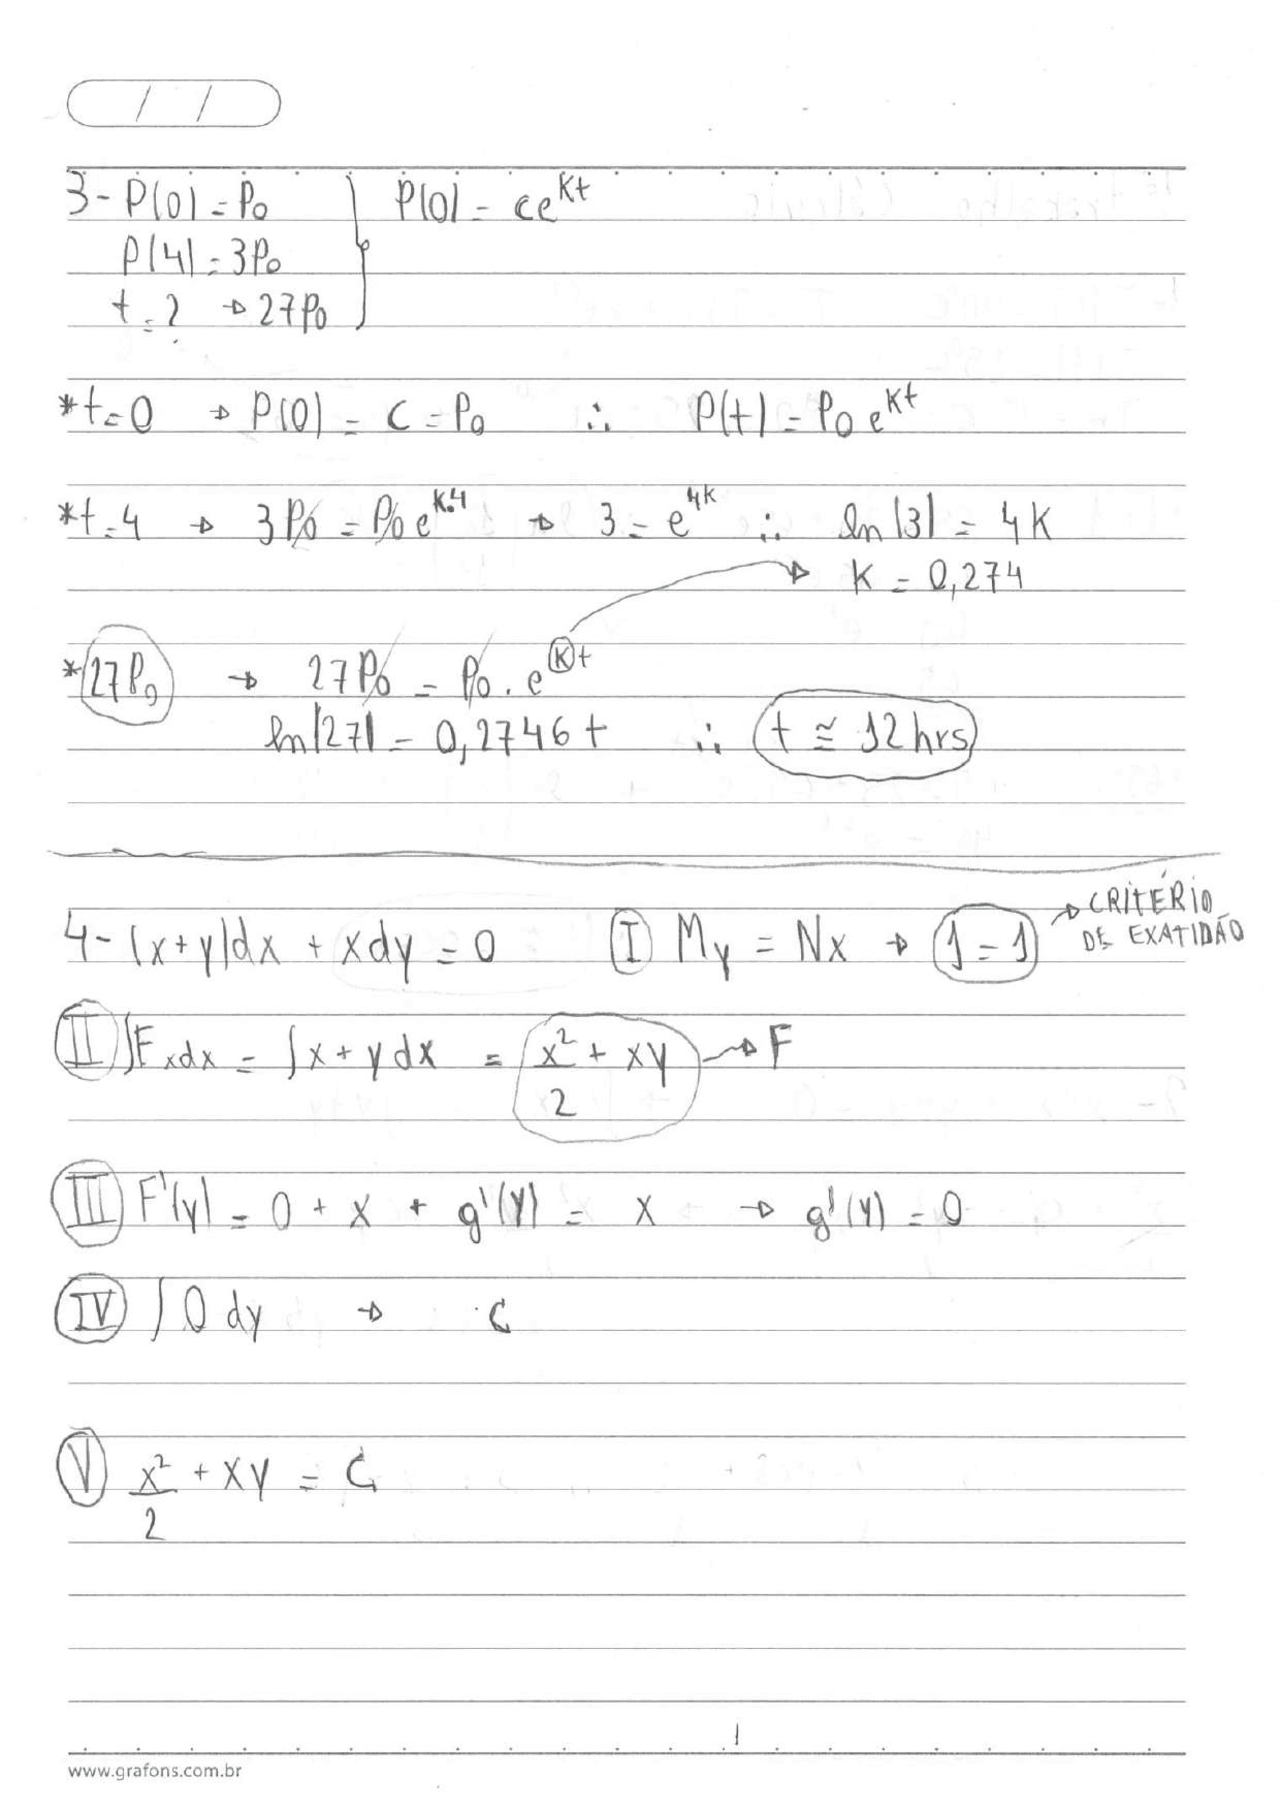 / /
3- P(0) = P0 P(0) = ce^kt
P(4) = 3P0
t = ? → 27P0
*t=0 → P(0) = C = P0 ∴ P(t) = P0 e^kt
*t=4 → 3P0 = P0 e^k.4 → 3 = e^4k ∴ ln|3| = 4K
K = 0,274
*27P0 → 27P0 = P0 . e^kt
ln|27| = 0,2746 t ∴ t ≅ 12 hrs
4- (x+y)dx + xdy = 0 I My = Nx → 1 = 1 → CRITÉRIO
DE EXATIDÃO
II ∫Fxdx = ∫x + y dx = x²/2 + xy → F
III F'(y) = 0 + x + g'(y) = x → g'(y) = 0
IV ∫0 dy → C
V x²/2 + xy = C
www.grafons.com.br